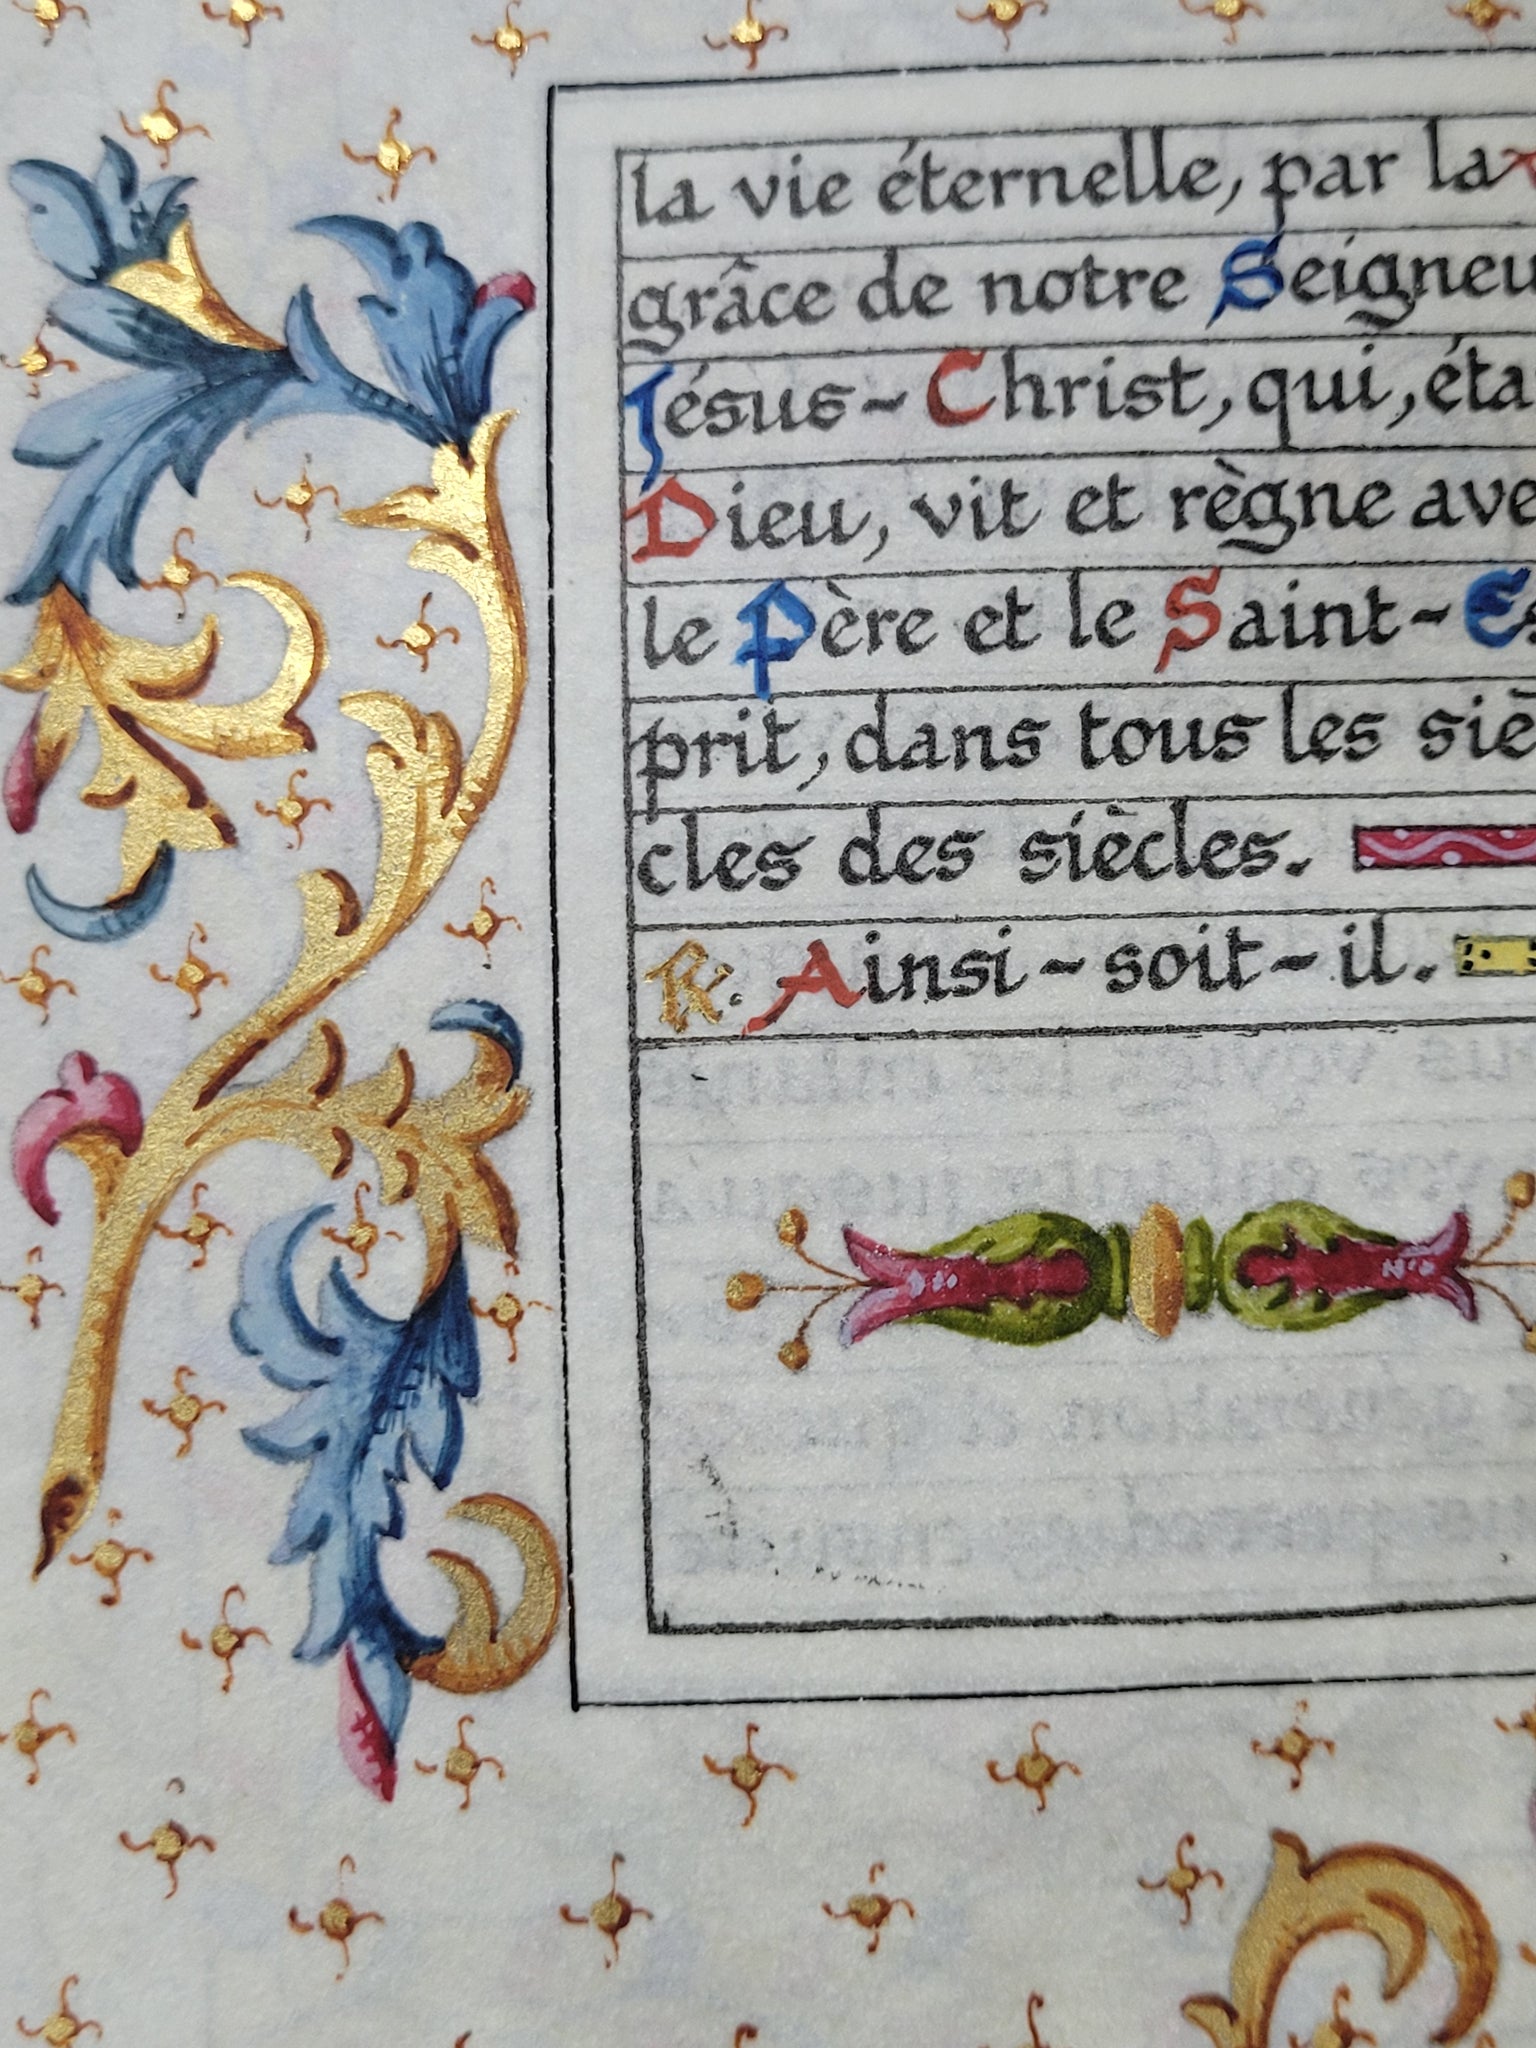 la vie éternelle, par la
grâce de notre Seigneu
Jésus-Christ, qui, éta
Dieu, vit et règne ave
le Père et le Saint-Es
prit, dans tous les siè
cles des siècles.
R. Ainsi-soit-il.